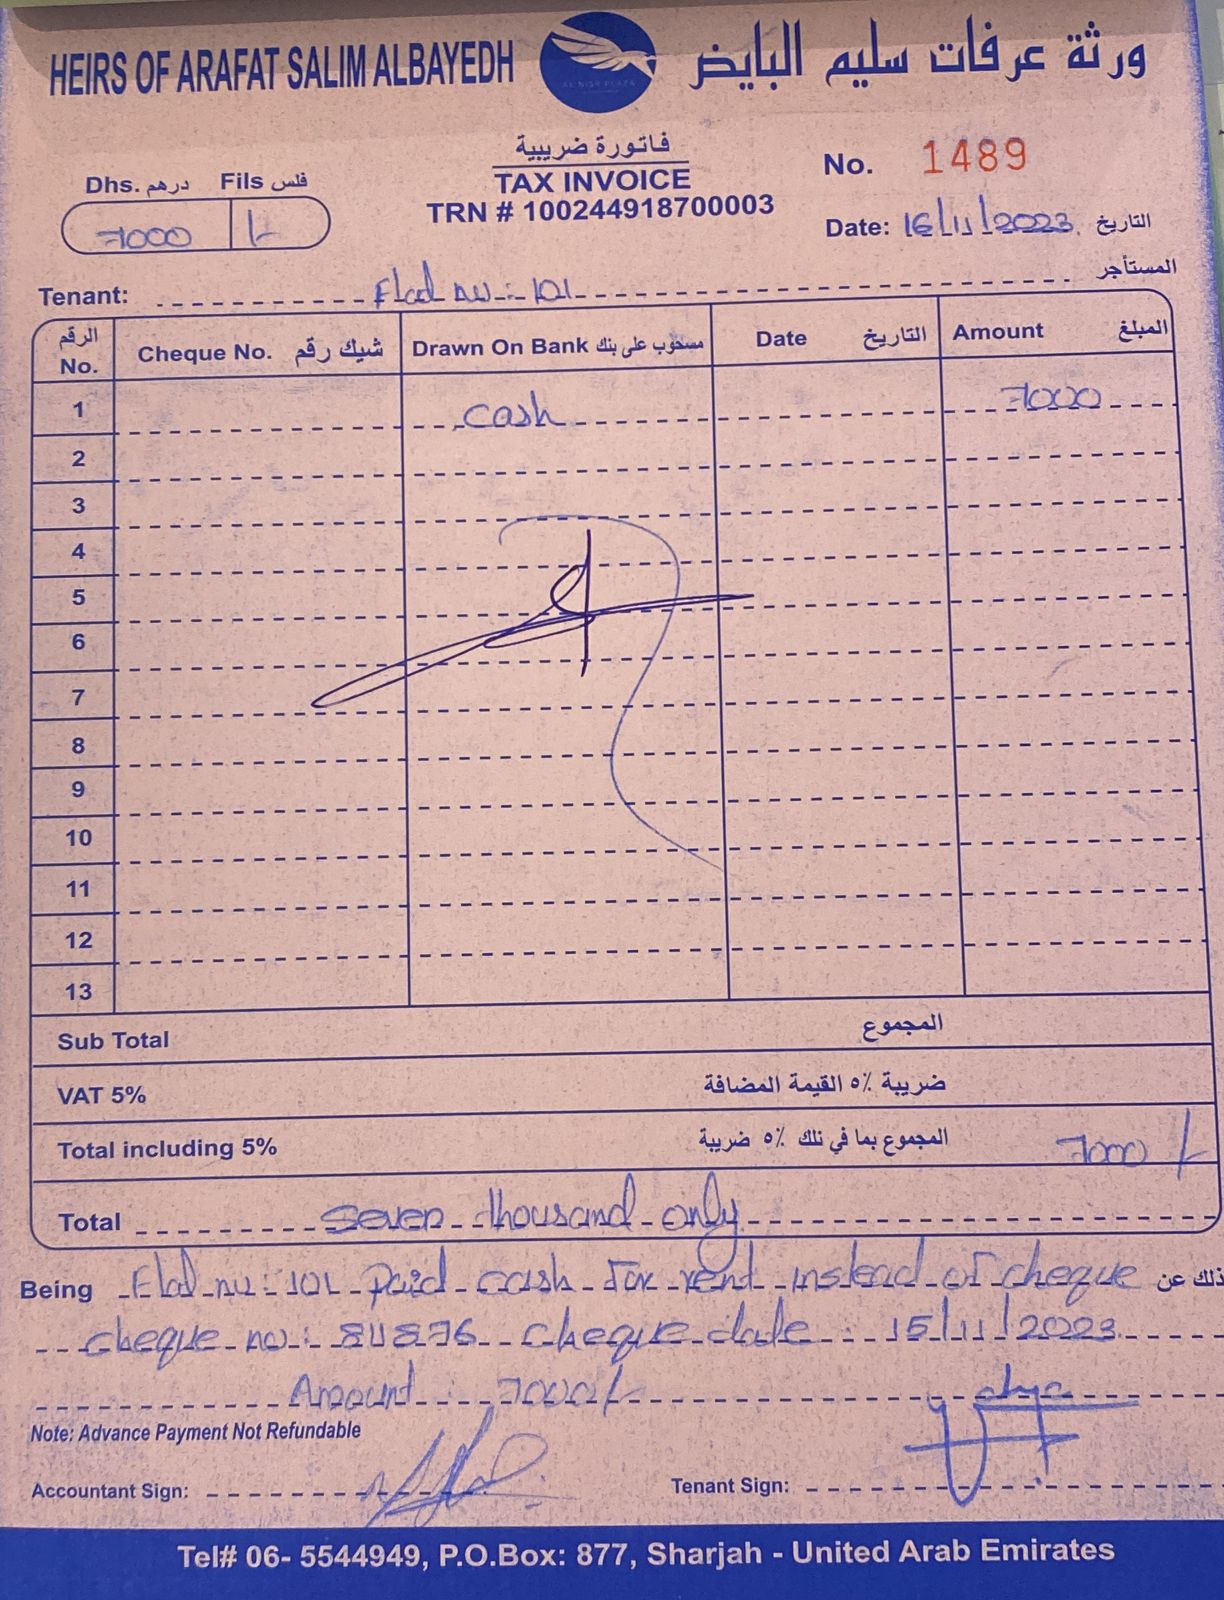 HEIRS OF ARAFAT SALIM ALBAYEDH
ورثة عرفات سليم البايض
AL NISR PLAZA
فاتورة ضريبية
TAX INVOICE
TRN # 100244918700003
Dhs. درهم Fils فلس
7000 /-
No. 1489
Date: 16/11/2023 التاريخ
Tenant: Flat no: 101 المستأجر
الرقم No. Cheque No. شيك رقم Drawn On Bank مسحوب على بنك Date التاريخ Amount المبلغ
1 cash 7000
2
3
4
5
6
7
8
9
10
11
12
13
Sub Total المجموع
VAT 5% ضريبة ٥٪ القيمة المضافة
Total including 5% المجموع بما في ذلك ٥٪ ضريبة 7000/-
Total seven thousand only
Being Flat no: 101 paid cash for rent instead of cheque وذلك عن
cheque no: cheque date: 15/11/2023
Amount: 7000/-
Note: Advance Payment Not Refundable
Accountant Sign: Tenant Sign:
Tel# 06- 5544949, P.O.Box: 877, Sharjah - United Arab Emirates